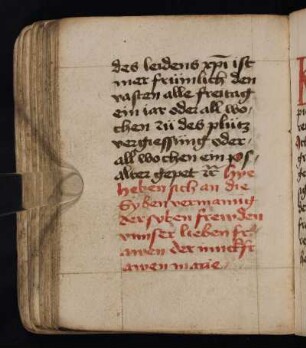 des leidens xp̄i ist
mer frümlich den
vasten alle freitag
ein iar oder all wo¬
chen zü des plütz
vergiessüng oder
all wochen ein ps¬
alter gepet Hye
heben sich an die
syben vermanüg
der syben frewden
vnnser lieben fr¬
awen der
awen marie